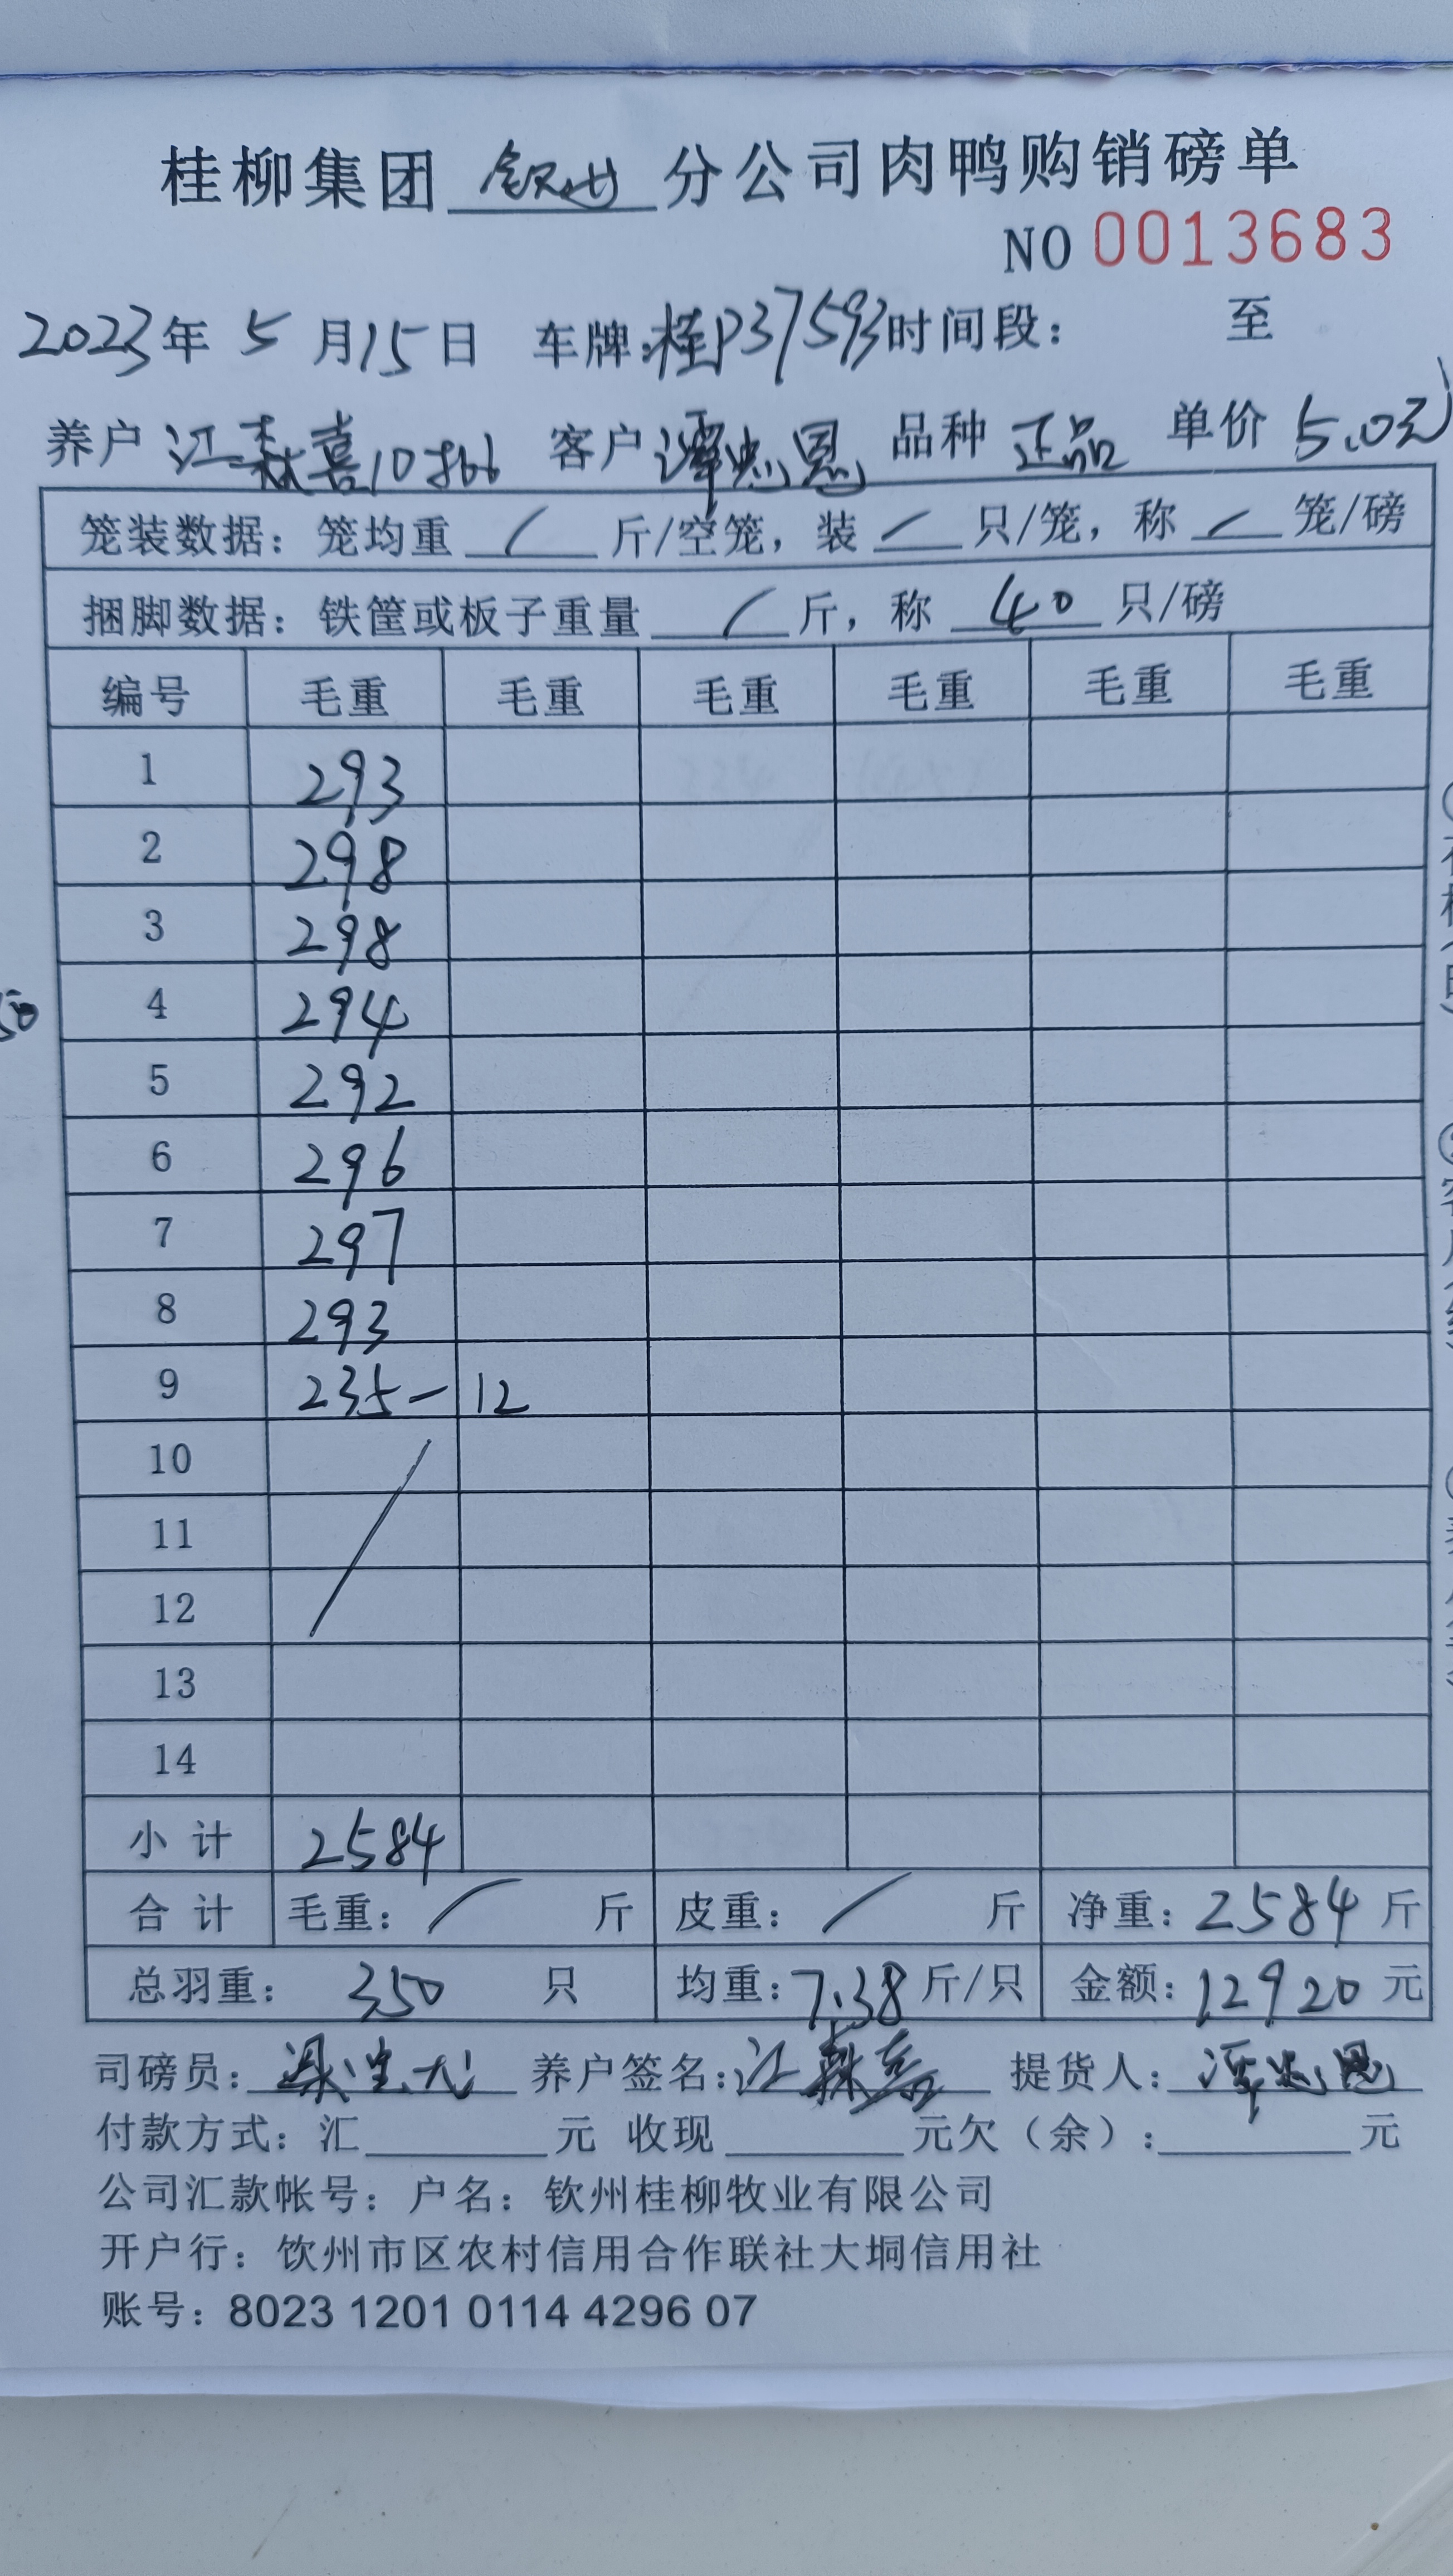 桂柳集团 钦州 分公司肉鸭购销磅单
NO 0013683
2023年 5 月15日 车牌:桂P37593时间段: 至
养户 江森喜 客户 谭忠恩 品种 正品 单价 5.0元
笼装数据: 笼均重 / 斤/空笼, 装 / 只/笼, 称 / 笼/磅
捆脚数据: 铁筐或板子重量 / 斤, 称 40 只/磅
编号 毛重 毛重 毛重 毛重 毛重 毛重
1 293
2 298
3 298
4 294
5 292
6 296
7 297
8 293
9 235-12
10
11
12
13
14
小计 2584
合计 毛重: / 斤 皮重: / 斤 净重: 2584 斤
总羽重: 350 只 均重: 7.38 斤/只 金额: 12920 元
司磅员: 养户签名: 江森喜 提货人: 谭忠恩
付款方式: 汇 元 收现 元欠(余): 元
公司汇款帐号: 户名: 钦州桂柳牧业有限公司
开户行: 钦州市区农村信用合作联社大垌信用社
账号: 8023 1201 0114 4296 07